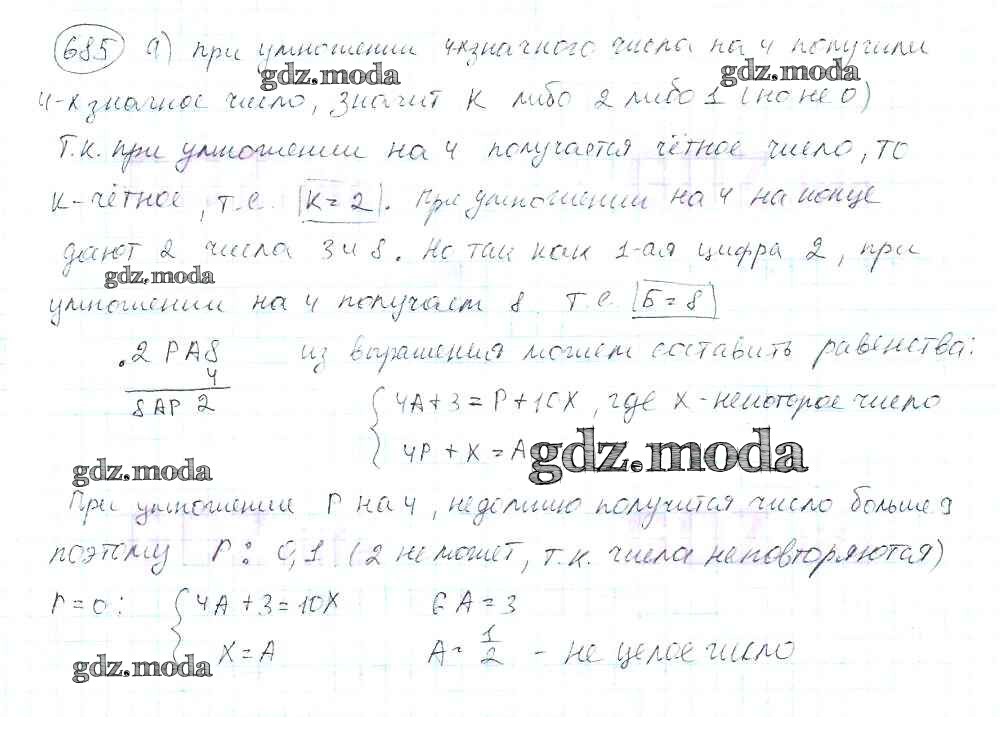 685 а) при умножении 4хзначного числа на 4 получили
gdz.moda gdz.moda
4-хзначное число, значит К либо 2 либо 1 (но не 0)
Т.к. при умножении на 4 получается чётное число, то
К-чётное, т.е. К=2. При умножении на 4 на конце
дают 2 числа 3 и 8. Но так как 1-ая цифра 2, при
gdz.moda
умножении на 4 получаем 8 т.е. Б=8
.2РА8 из выражения можем составить равенства:
4
8АР2 4А+3=Р+10Х, где х-некоторое число
4Р+Х=А
gdz.moda gdz.moda
При умножении Р на 4, недолжно получится число больше 9
поэтому Р: 0,1 (2 не может, т.к. числа неповторяются)
Р=0: 4А+3=10Х 6А=3
Х=А А=1/2 - не целое число
gdz.moda